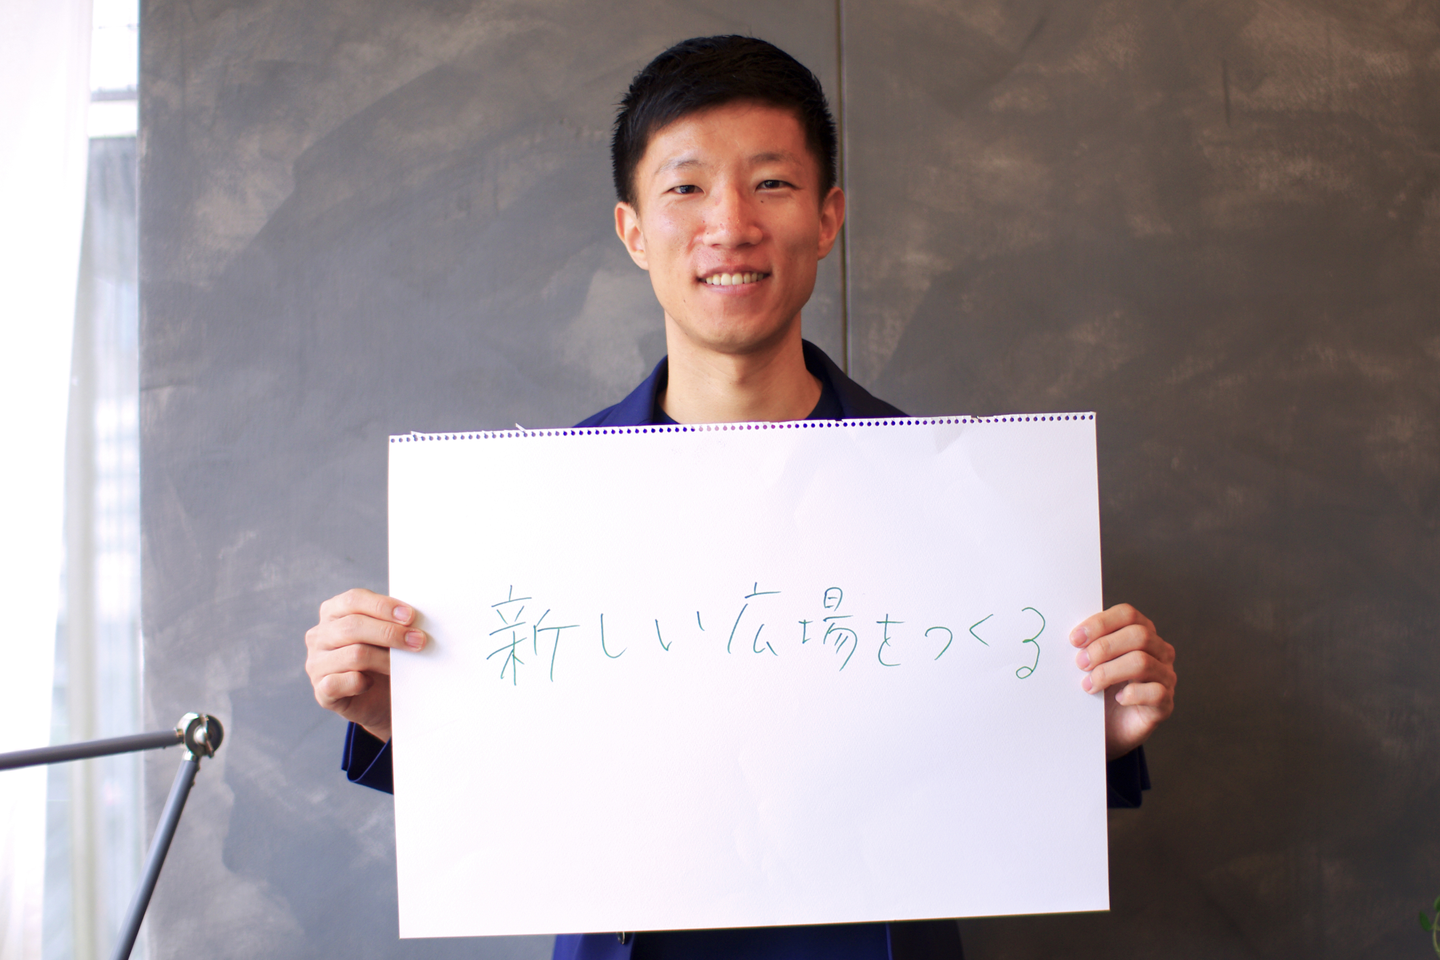 新しい広場をつくる